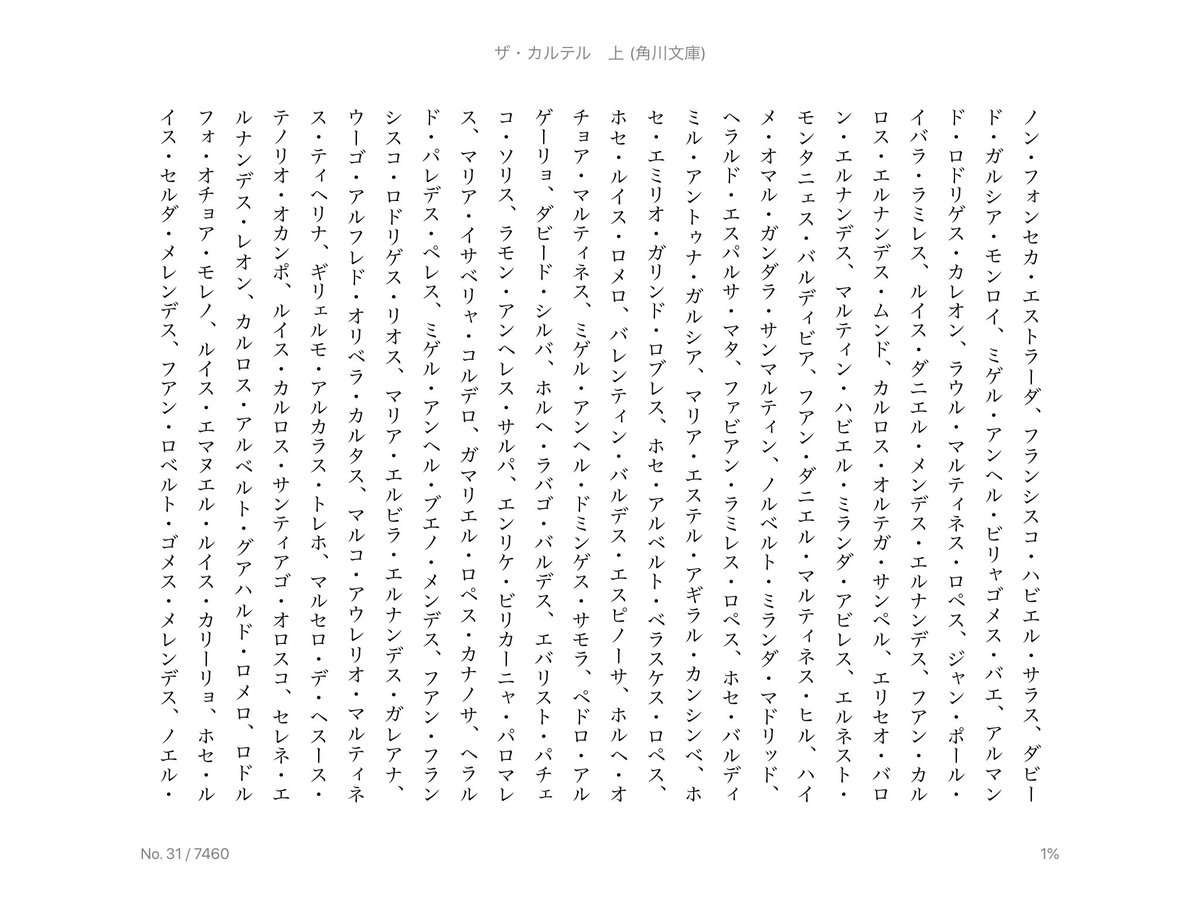 ザ・カルテル　上 (角川文庫)
ノン・フォンセカ・エストラーダ、フランシスコ・ハビエル・サラス、ダビー
ド・ガルシア・モンロイ、ミゲル・アンヘル・ビリャゴメス・バエ、アルマン
ド・ロドリゲス・カレオン、ラウル・マルティネス・ロペス、ジャン・ポール・
イバラ・ラミレス、ルイス・ダニエル・メンデス・エルナンデス、フアン・カル
ロス・エルナンデス・ムンド、カルロス・オルテガ・サンペル、エリセオ・バロ
ン・エルナンデス、マルティン・ハビエル・ミランダ・アビレス、エルネスト・
モンタニェス・バルディビア、フアン・ダニエル・マルティネス・ヒル、ハイ
メ・オマル・ガンダラ・サンマルティン、ノルベルト・ミランダ・マドリッド、
ヘラルド・エスパルサ・マタ、ファビアン・ラミレス・ロペス、ホセ・バルディ
ミル・アントゥナ・ガルシア、マリア・エステル・アギラル・カンシンベ、ホ
セ・エミリオ・ガリンド・ロブレス、ホセ・アルベルト・ベラスケス・ロペス、
ホセ・ルイス・ロメロ、バレンティン・バルデス・エスピノーサ、ホルヘ・オ
チョア・マルティネス、ミゲル・アンヘル・ドミンゲス・サモラ、ペドロ・アル
ゲーリョ、ダビード・シルバ、ホルヘ・ラバゴ・バルデス、エバリスト・パチェ
コ・ソリス、ラモン・アンヘレス・サルパ、エンリケ・ビリカーニャ・パロマレ
ス、マリア・イサベリャ・コルデロ、ガマリエル・ロペス・カナノサ、ヘラル
ド・パレデス・ペレス、ミゲル・アンヘル・ブエノ・メンデス、フアン・フラン
シスコ・ロドリゲス・リオス、マリア・エルビラ・エルナンデス・ガレアナ、
ウーゴ・アルフレド・オリベラ・カルタス、マルコ・アウレリオ・マルティネ
ス・ティヘリナ、ギリェルモ・アルカラス・トレホ、マルセロ・デ・ヘスース・
テノリオ・オカンポ、ルイス・カルロス・サンティアゴ・オロスコ、セレネ・エ
ルナンデス・レオン、カルロス・アルベルト・グアハルド・ロメロ、ロドル
フォ・オチョア・モレノ、ルイス・エマヌエル・ルイス・カリーリョ、ホセ・ル
イス・セルダ・メレンデス、フアン・ロベルト・ゴメス・メレンデス、ノエル・
No. 31 / 7460
1%